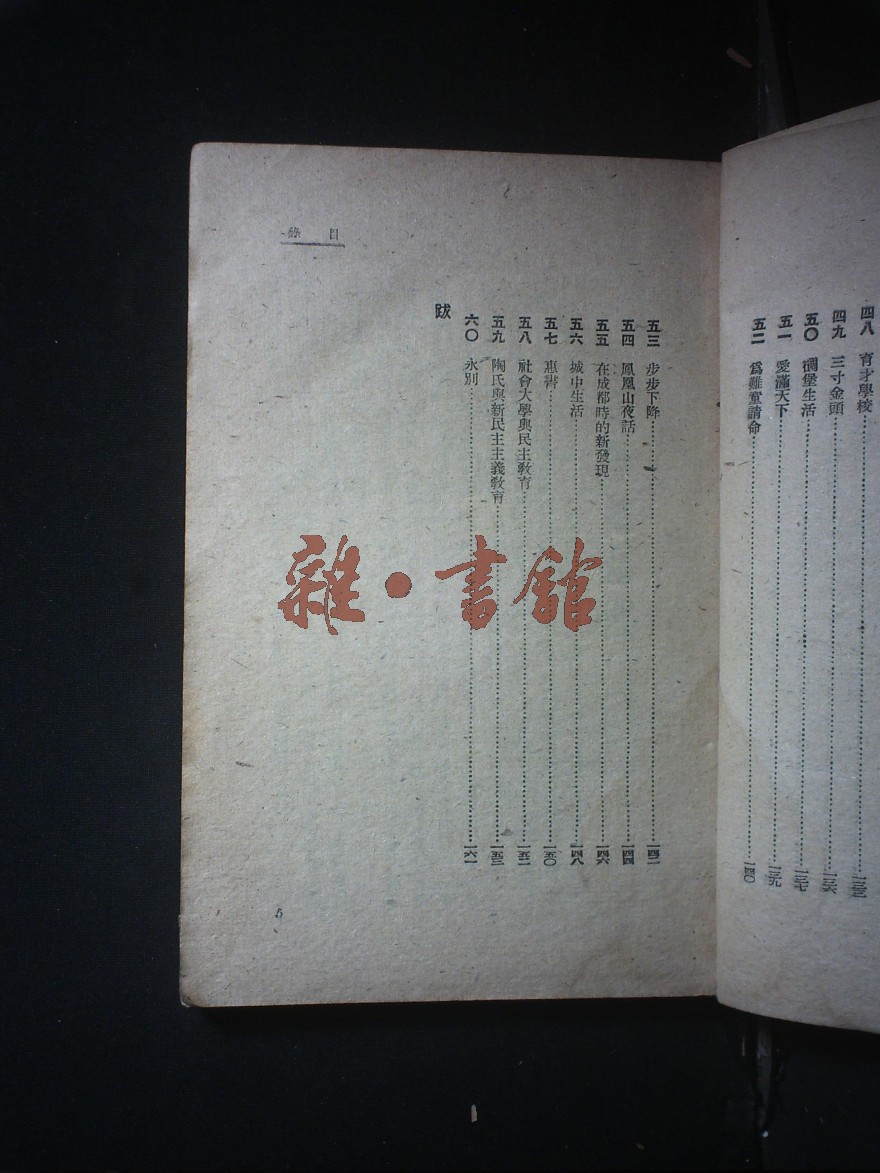 四八 育才學校……一三三
四九 三寸金頭……一三六
五〇 碉堡生活……一三七
五一 愛滿天下……一三九
五二 爲難童請命……一四〇
目錄
五三 步步下降……一四二
五四 鳳凰山夜話……一四四
五五 在成都時的新發現……一四六
五六 城中生活……一四八
五七 惠書……一五〇
五八 社會大學與民主教育……一五二
五九 陶氏與新民主主義教育……一五三
六〇 永別……一六一
跋
5
雜·書館